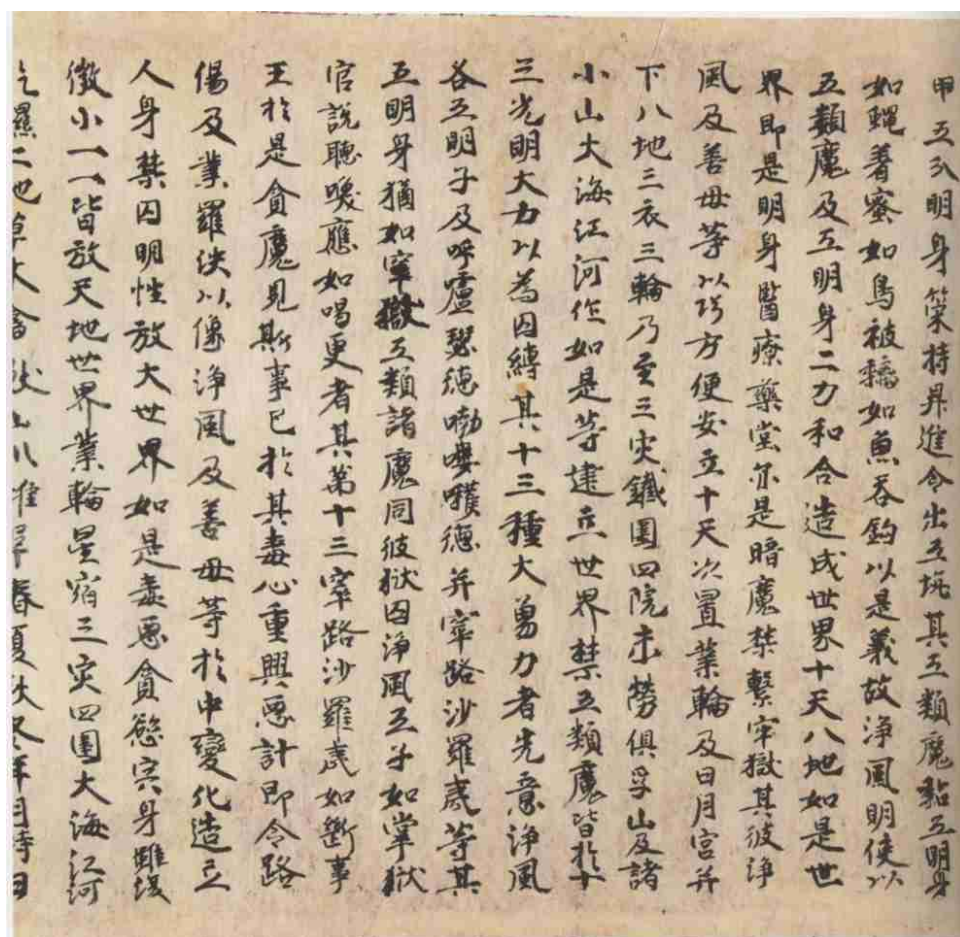 甲五分明身策持昇進令出五坑其五類魔黏五明身
如蠅著蜜如鳥被黐如魚吞鈎以是義故淨風明使以
五類魔及五明身二力和合造成世界十天八地如是世
界即是明身醫療藥堂亦是暗魔禁繫牢獄其彼淨
風及善母等以巧方便安立十天次置業輪及日月宮并
下八地三衣三輪乃至三灾鐵圍四院未勞俱孚山及諸
小山大海江河作如是等建立世界禁五類魔皆於十
三光明大力以為囚縛其十三種大勇力者先意淨風
各五明子及呼嚧瑟德嘞嘍嚄德并窣路沙羅夷等其
五明身猶如牢獄五類諸魔同彼獄囚淨風五子如掌獄
官說聽喚應如喝更者其第十三窣路沙羅夷如斷事
王於是貪魔見斯事已於其毒心重興惡計即令路
傷及業羅泱以像淨風及善母等於中變化造立
人身禁囚明性放大世界如是毒惡貪慾宍身雖復
微小一一皆放天地世界業輪星宿三灾四圍大海江河
乾濕二地草木禽獸山川堆阜春夏秋冬年月時日